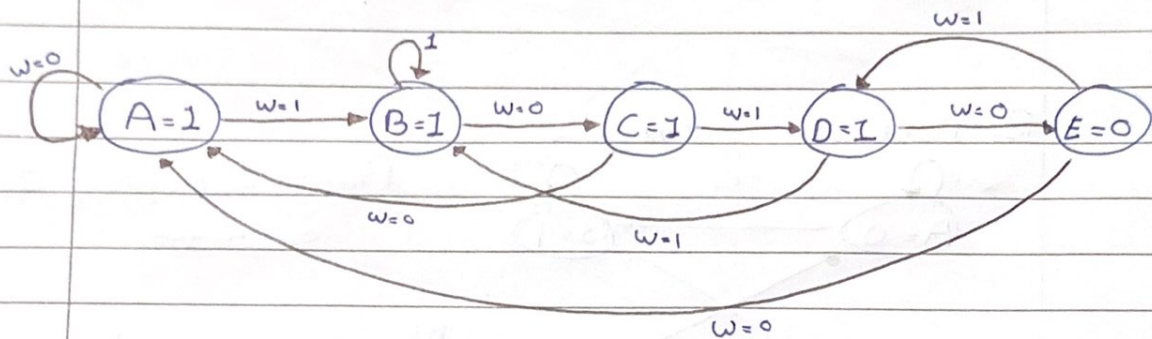 w=1
w=0
1
A=1
w=1
B=1
w=0
C=1
w=1
D=1
w=0
E=0
w=0
w=1
w=0